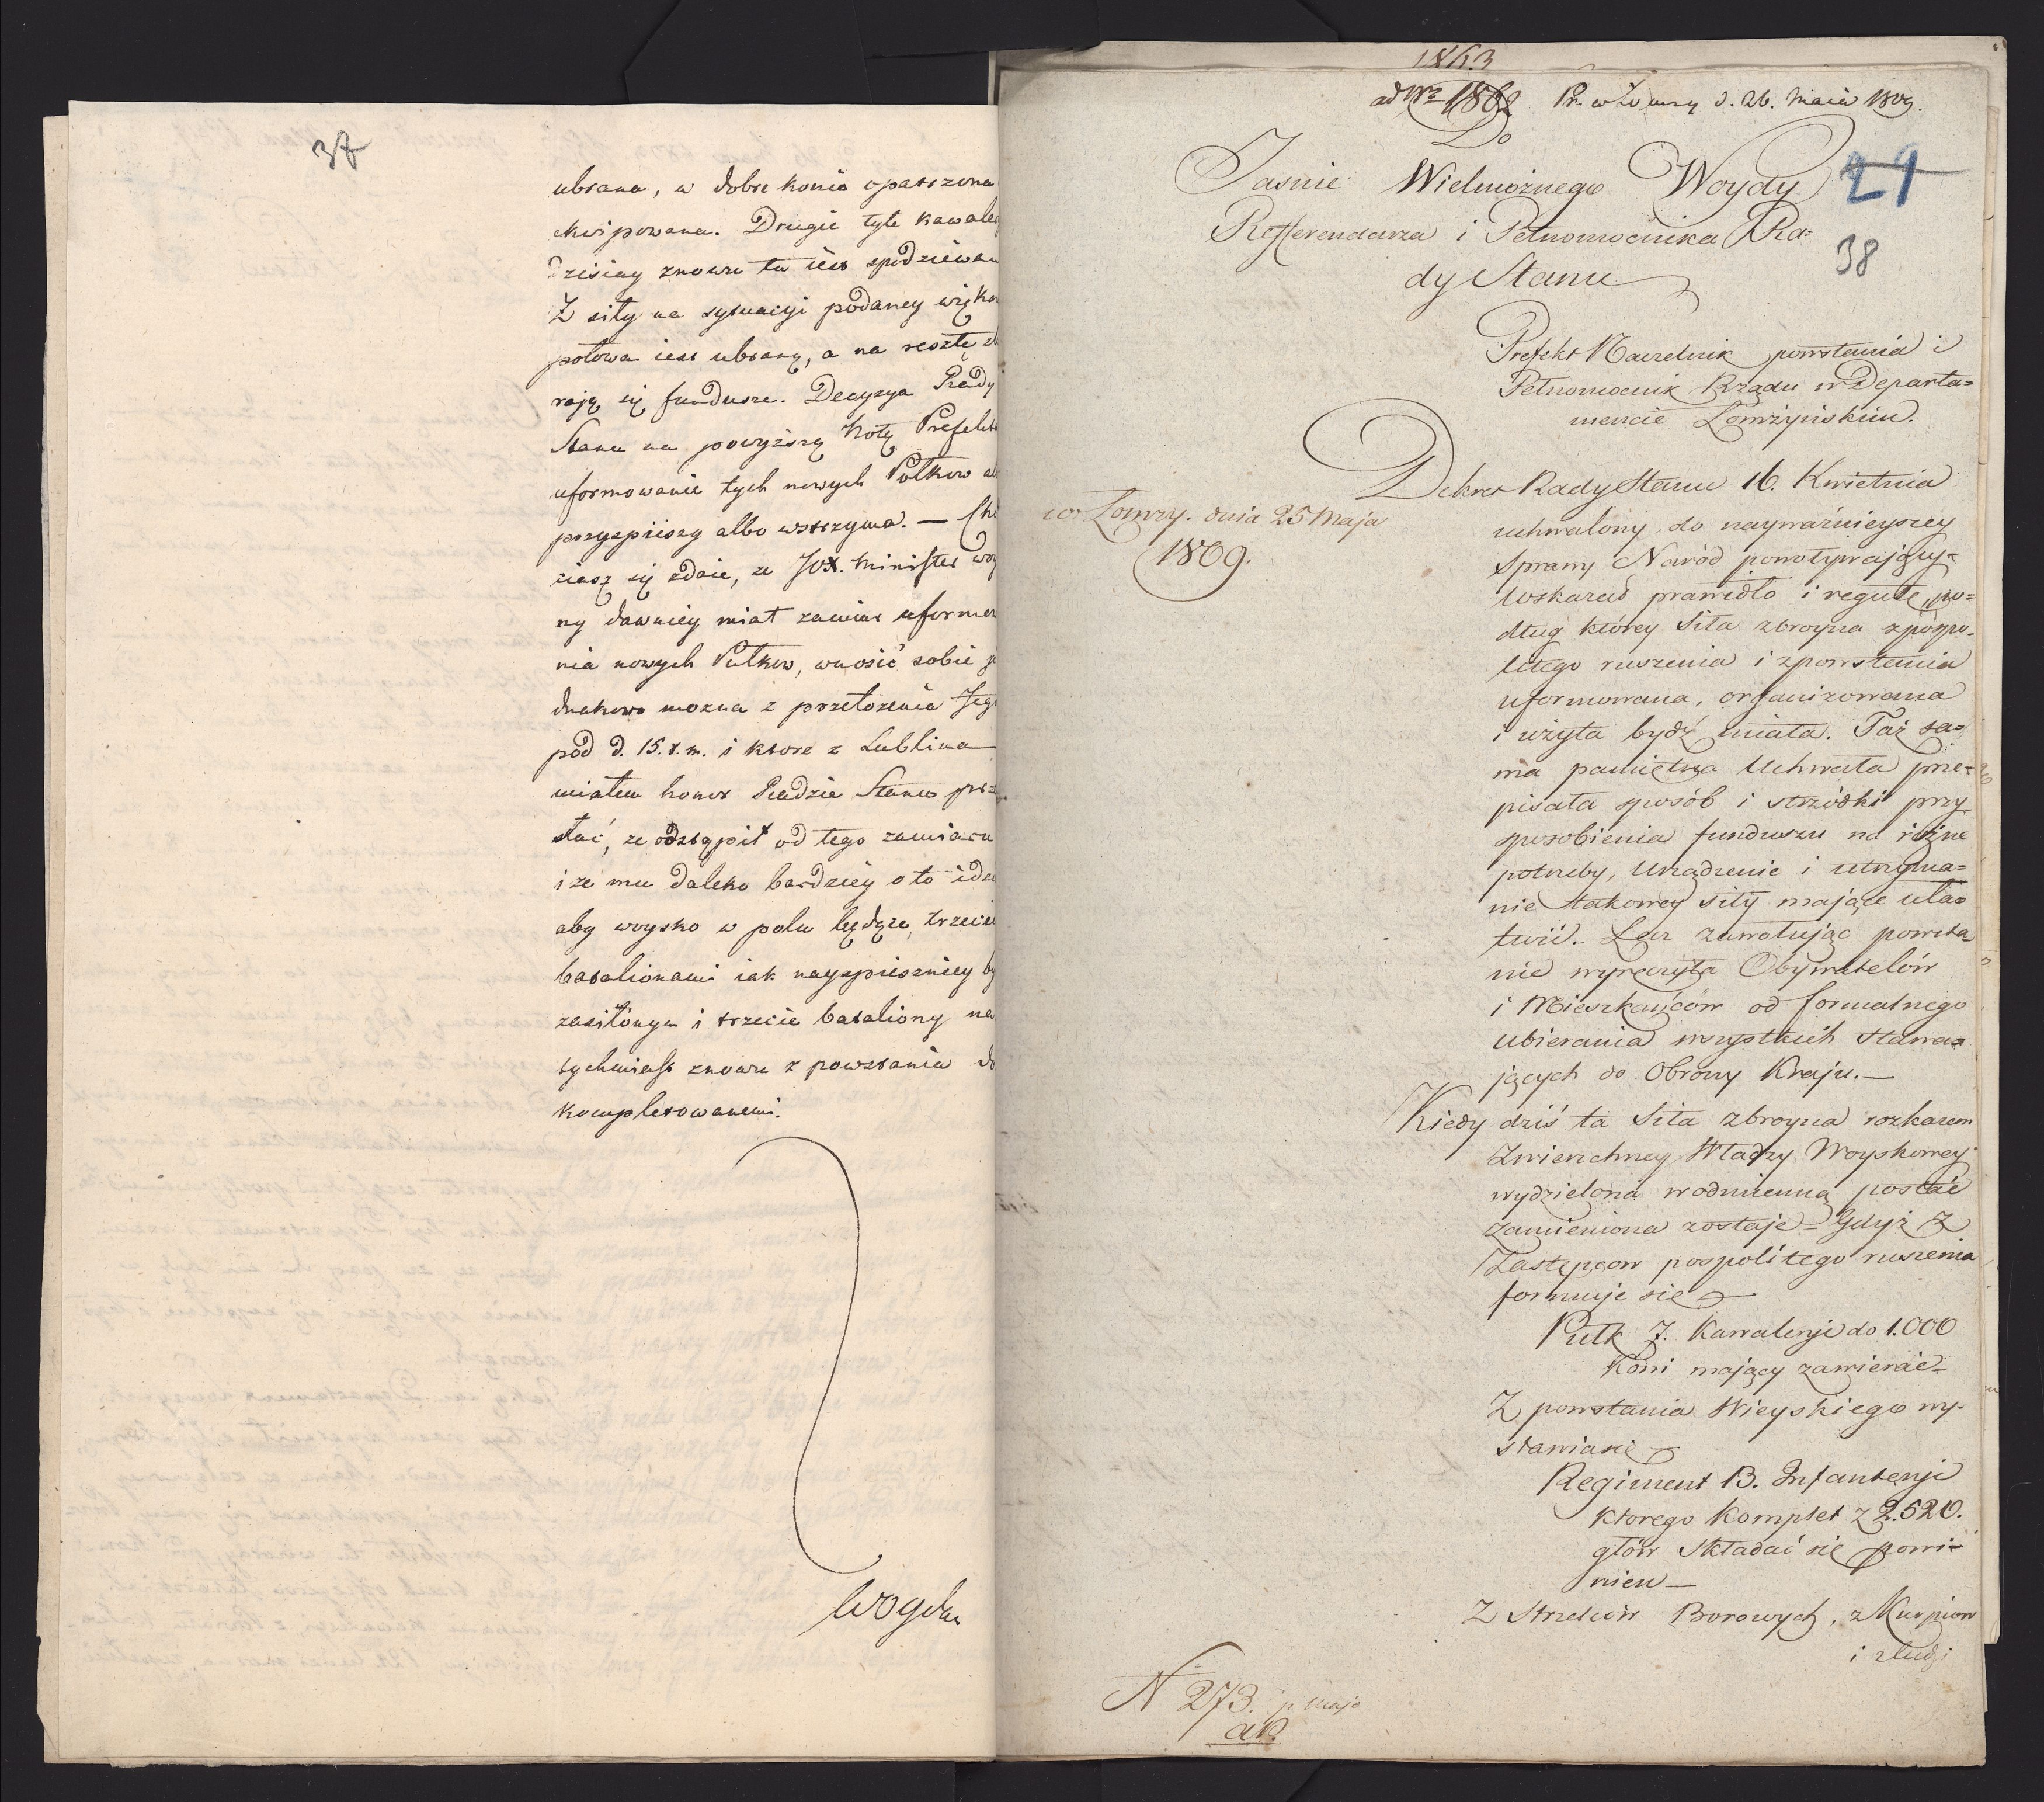 37
ubrana, w dobre konie opatrzona
ekwipowana. Drugie tyle kawaler
dzisiay znowu tu iest spodziewan
Z siły na sytuacyi podaney więks
połowa iest ubraną, a na resztę zb
rają się fundusze. Decyzya Rady
Stanu na powyższą Notę Prefekta
uformowanie tych nowych Pułkow al
przyspieszy albo wstrzyma. — Cho
ciasz się zdaie, ze JOX. Minister woy
ny dawniey miał zamiar uformowa
nia nowych Pułkow, wnosić sobie je
dnakowo mozna z przełozenia Jego
pod d. 15. t. m. i ktore z Lublina
miałem honor Radzie Stanu prze
słać, ze odstąpił od tego zamiaru
i ze mu daleko bardziey o to idzie
aby woysko w polu będące, trzeciemi
batalionami iak nayspieszniey by
zasilonym i trzecie bataliony na
tychmiast znowu z powstania do
kompletowanemi.
Woyda
1863
ad Nro 1862 Pr. w Łomży d. 26. Maia 1809.
21
38
Do
Jasnie Wielmożnego Woydy
Refferendarza i Pełnomocnika Ra=
dy Stanu
Prefekt Naczelnik powstania i
Pełnomocnik Rządu w Departa=
mencie Łomżyńskim.
w Łomży. dnia 25 Maja
1809.
Dekret Rady Stanu 16. Kwietnia
uchwalony, do nayważnieyszey
Sprawy Naród powoływający=
wskazał prawidło i regułę, po=
dług którey Siła zbroyna z pospo=
litego ruszenia i z powstania
uformowana, organizowana
i użyta bydź miała. Taż sa=
ma pamiętna Uchwała prze=
pisała sposób i strzódki przy
sposobienia funduszu na różne
potrzeby, Urządzenie i utrzyma=
nie takowey siły mające uła=
twić. Lecz zawołując powsta
nie wyręczyła Obywatelów
i Mieszkańców od formalnego
ubierania wszystkich stawa=
jących do Obrony Kraju. —
Kiedy dziś ta Siła zbroyna rozkazem
Zwierzchney Władzy Woyskowey
wydzielona w odmienną postać
zamieniona zostaje — Gdyż z
Zastępcow pospolitego ruszenia
formuje się —
Pułk J. Kawaleryi do 1.000
Koni mający zawierać —
Z powstania Wieyskiego wy=
stawia się —
Regiment 13. Infanteryi
ktorego komplet z 2.520.
głów składać się powi=
nien —
Z Strzelców Borowych, z Kurpiow
i z ludzi
N 273. p Maja